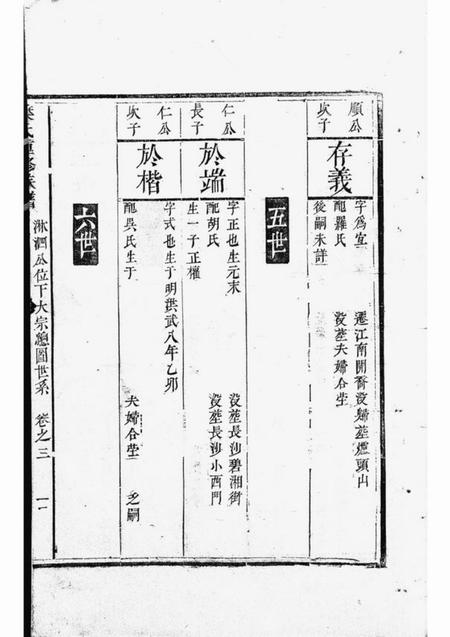 順公
次子
存義
字爲宜
配羅氏
後嗣未詳
遷江南開
沒歸葬煙頭山
沒葬夫婦合塋
五世
仁公
長子
於端
字正也生元末
配胡氏
生一子正權
沒葬長沙碧湘街
沒葬長沙小西門
仁公
次子
於楷
字式也生于明洪武八年乙卯
配吳氏生于
夫婦合塋
乏嗣
六世
氏重修族譜
沐泗公位下大宗總圖世系
卷之三